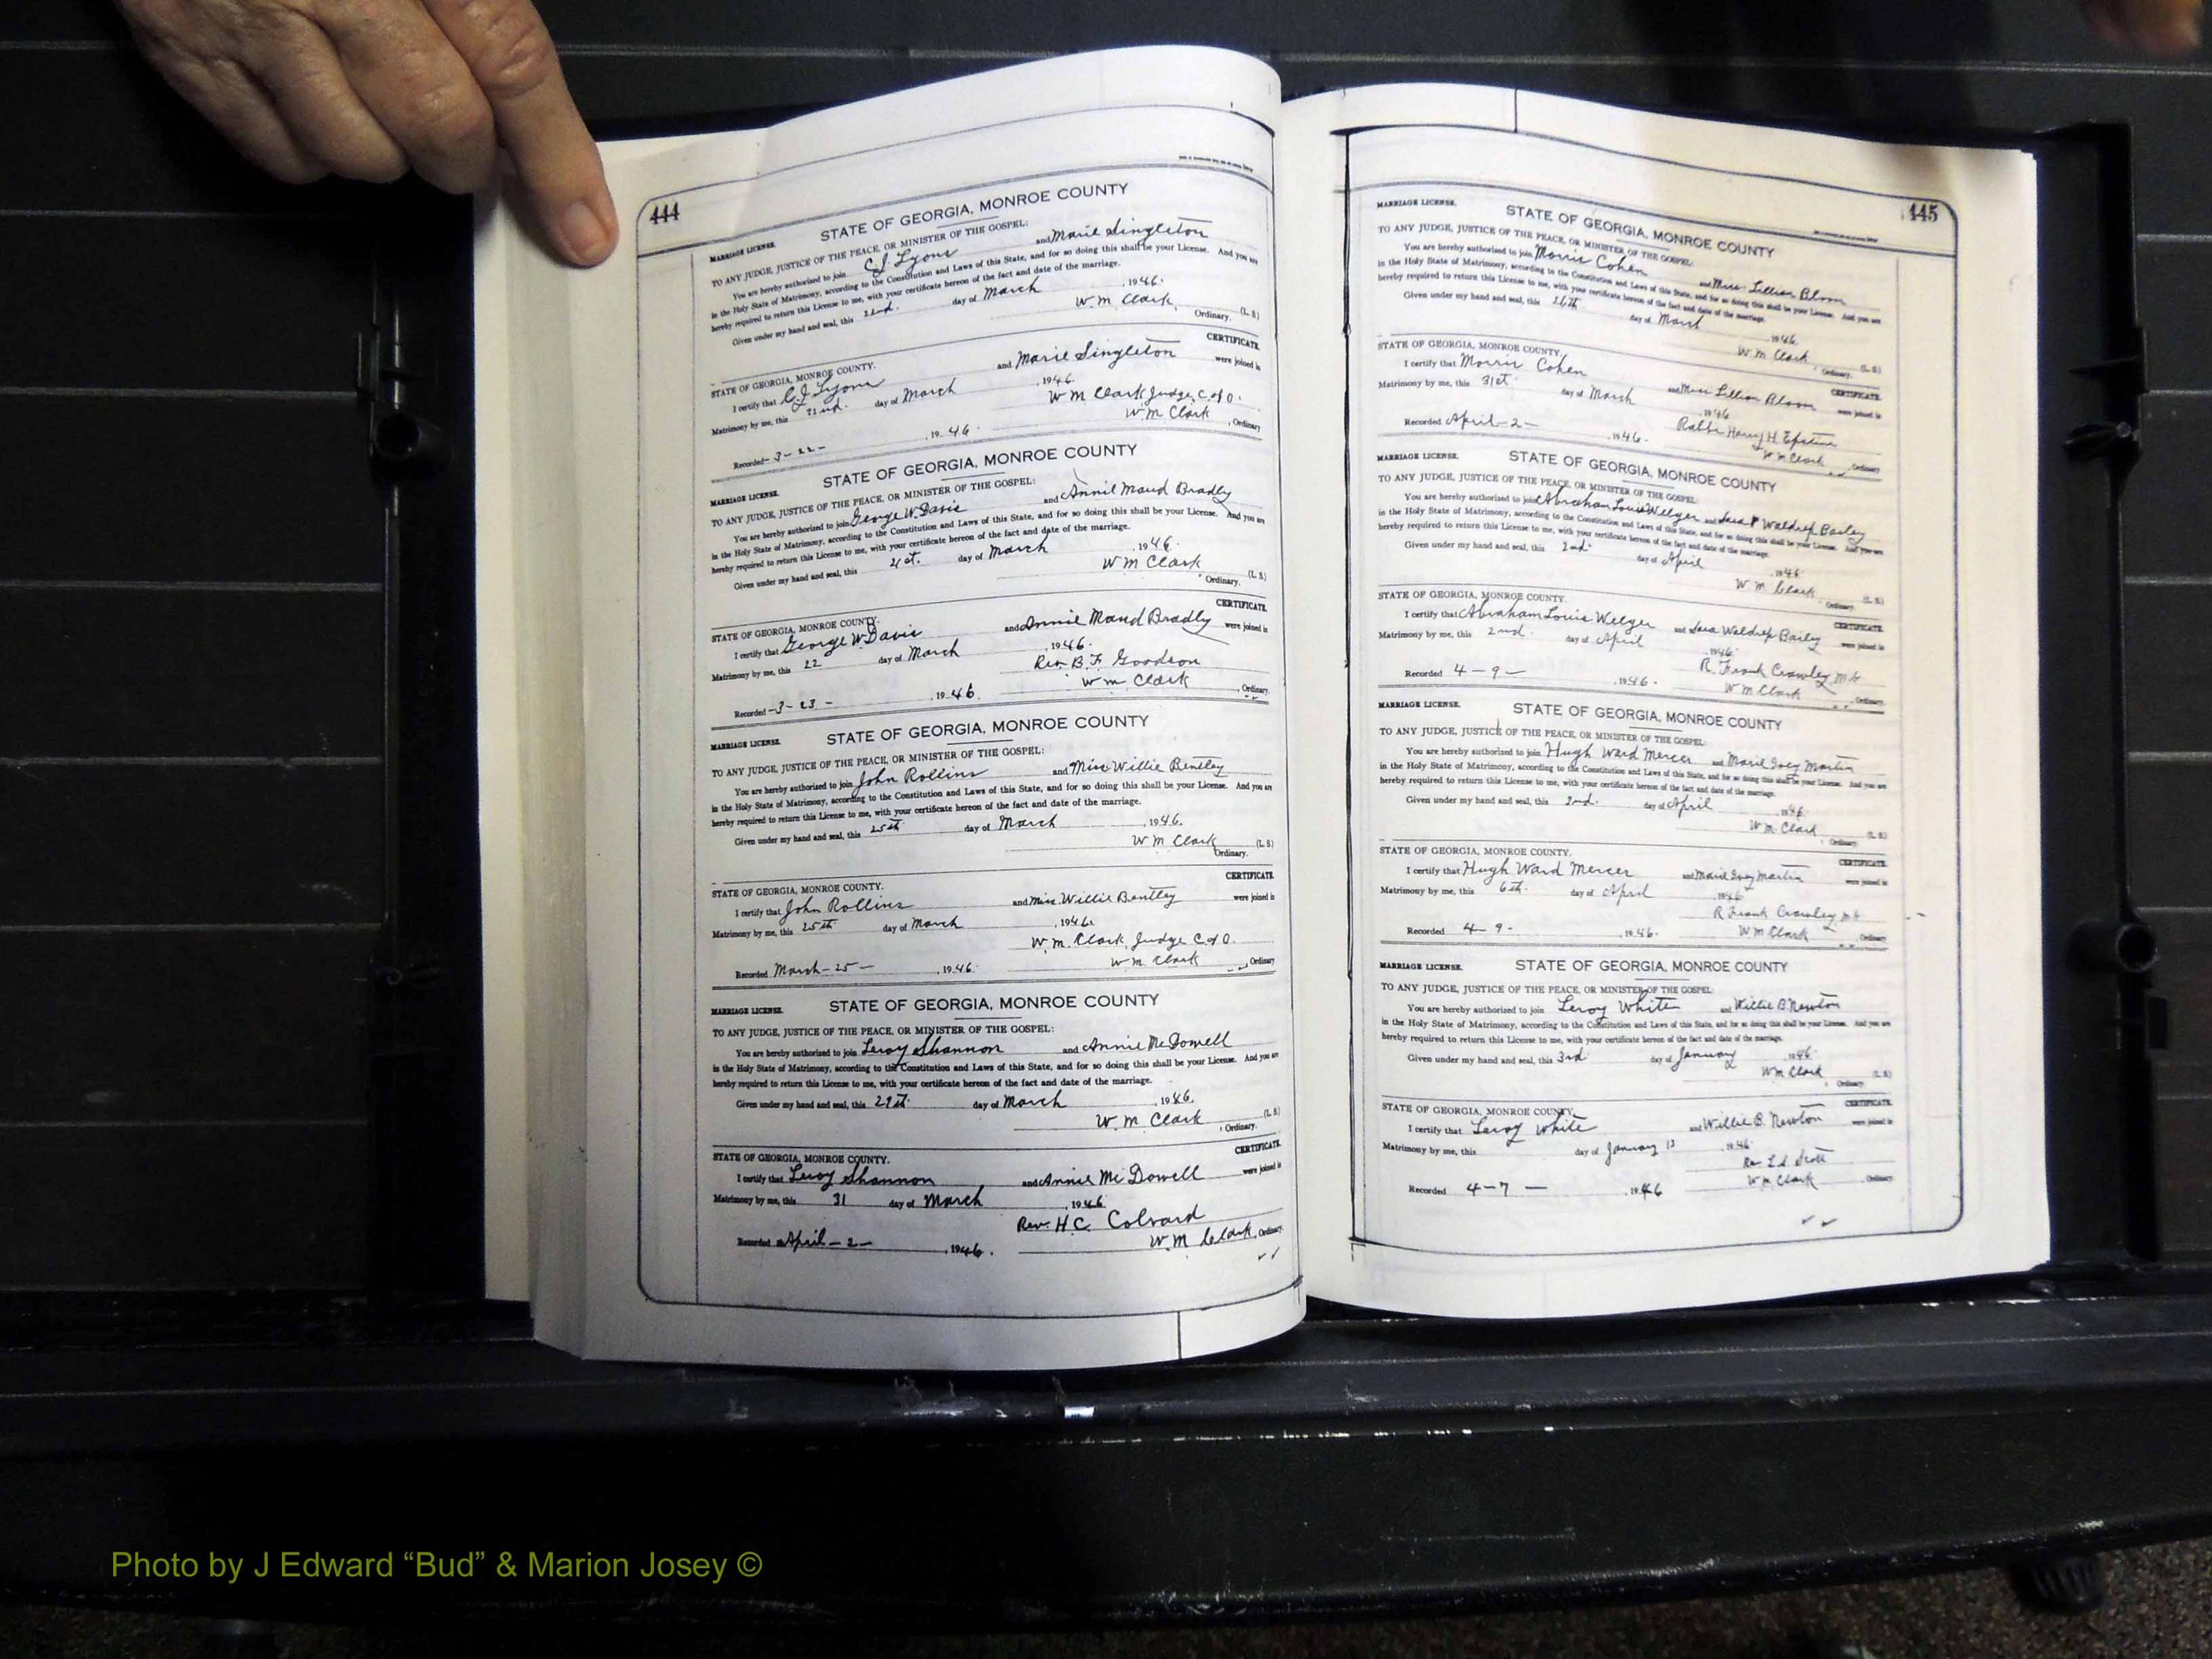 444
MARRIAGE LICENSE. STATE OF GEORGIA, MONROE COUNTY
TO ANY JUDGE, JUSTICE OF THE PEACE, OR MINISTER OF THE GOSPEL:
You are hereby authorized to join C J Lyons and Marie Singleton
in the Holy State of Matrimony, according to the Constitution and Laws of this State, and for so doing this shall be your License. And you are
hereby required to return this License to me, with your certificate hereon of the fact and date of the marriage.
Given under my hand and seal, this 22nd. day of March, 1946.
W. m Clark, (L. S.)
Ordinary.
CERTIFICATE
STATE OF GEORGIA, MONROE COUNTY.
I certify that C J Lyons and Marie Singleton were joined in
Matrimony by me, this 22nd. day of March, 1946.
W m Clark Judge, C. of O.
Recorded 3-22-, 1946. W m Clark, Ordinary
MARRIAGE LICENSE. STATE OF GEORGIA, MONROE COUNTY
TO ANY JUDGE, JUSTICE OF THE PEACE, OR MINISTER OF THE GOSPEL:
You are hereby authorized to join George W. Davis and Annie Maud Bradly
in the Holy State of Matrimony, according to the Constitution and Laws of this State, and for so doing this shall be your License. And you are
hereby required to return this License to me, with your certificate hereon of the fact and date of the marriage.
Given under my hand and seal, this 21st. day of March, 1946.
W m Clark (L. S.)
Ordinary.
CERTIFICATE
STATE OF GEORGIA, MONROE COUNTY.
I certify that George W. Davis and Annie Maud Bradly were joined in
Matrimony by me, this 22 day of March, 1946.
Rev. B. F. Goodson
Recorded -3-23-, 1946. W m Clark, Ordinary.
MARRIAGE LICENSE. STATE OF GEORGIA, MONROE COUNTY
TO ANY JUDGE, JUSTICE OF THE PEACE, OR MINISTER OF THE GOSPEL:
You are hereby authorized to join John Rollins and Miss Willie Bentley
in the Holy State of Matrimony, according to the Constitution and Laws of this State, and for so doing this shall be your License. And you are
hereby required to return this License to me, with your certificate hereon of the fact and date of the marriage.
Given under my hand and seal, this 25th day of March, 1946.
W m Clark (L. S.)
Ordinary.
CERTIFICATE
STATE OF GEORGIA, MONROE COUNTY.
I certify that John Rollins and Miss. Willie Bentley were joined in
Matrimony by me, this 25th day of March, 1946.
W. m. Clark, Judge C of O.
Recorded March-25-, 1946. W m. Clark, Ordinary
MARRIAGE LICENSE. STATE OF GEORGIA, MONROE COUNTY
TO ANY JUDGE, JUSTICE OF THE PEACE, OR MINISTER OF THE GOSPEL:
You are hereby authorized to join Leroy Shannon and Annie McDowell
in the Holy State of Matrimony, according to the Constitution and Laws of this State, and for so doing this shall be your License. And you are
hereby required to return this License to me, with your certificate hereon of the fact and date of the marriage.
Given under my hand and seal, this day of March, 1946.
W. m Clark (L. S.)
Ordinary.
CERTIFICATE
STATE OF GEORGIA, MONROE COUNTY.
I certify that Leroy Shannon and Annie McDowell were joined in
Matrimony by me, this 31 day of March, 1946
Rev. H. C. Colvard
Recorded April-2-, 1946. W. m Clark, Ordinary
445
MARRIAGE LICENSE. STATE OF GEORGIA, MONROE COUNTY
TO ANY JUDGE, JUSTICE OF THE PEACE, OR MINISTER OF THE GOSPEL:
You are hereby authorized to join Morris Cohen and Miss Lillian Bloom
in the Holy State of Matrimony, according to the Constitution and Laws of this State, and for so doing this shall be your License. And you are
hereby required to return this License to me, with your certificate hereon of the fact and date of the marriage.
Given under my hand and seal, this 26th day of March 1946.
W m Clark (L. S.)
Ordinary.
CERTIFICATE
STATE OF GEORGIA, MONROE COUNTY.
I certify that Morris Cohen and Miss Lillian Bloom were joined in
Matrimony by me, this 31st. day of March, 1946
Rabbi Harry H. Epstein
Recorded April-2-, 1946. W m Clark, Ordinary
MARRIAGE LICENSE. STATE OF GEORGIA, MONROE COUNTY
TO ANY JUDGE, JUSTICE OF THE PEACE, OR MINISTER OF THE GOSPEL:
You are hereby authorized to join Abraham Louis Welger and Sara Waldrep Bailey
in the Holy State of Matrimony, according to the Constitution and Laws of this State, and for so doing this shall be your License. And you are
hereby required to return this License to me, with your certificate hereon of the fact and date of the marriage.
Given under my hand and seal, this 2nd. day of April, 1946
W m Clark (L. S.)
Ordinary.
CERTIFICATE
STATE OF GEORGIA, MONROE COUNTY.
I certify that Abraham Louis Welger and Sara Waldrep Bailey were joined in
Matrimony by me, this 2nd. day of April, 1946.
R. Frank Crawley, M G
Recorded 4-9-, 1946. W m Clark, Ordinary
MARRIAGE LICENSE. STATE OF GEORGIA, MONROE COUNTY
TO ANY JUDGE, JUSTICE OF THE PEACE, OR MINISTER OF THE GOSPEL:
You are hereby authorized to join Hugh Ward Mercer and Marie Ivey Martin
in the Holy State of Matrimony, according to the Constitution and Laws of this State, and for so doing this shall be your License. And you are
hereby required to return this License to me, with your certificate hereon of the fact and date of the marriage.
Given under my hand and seal, this 2nd. day of April, 1946.
W m Clark (L. S.)
Ordinary.
CERTIFICATE
STATE OF GEORGIA, MONROE COUNTY.
I certify that Hugh Ward Mercer and Marie Ivey Martin were joined in
Matrimony by me, this 6th. day of April 1946
R Frank Crawley M G
Recorded 4-9-, 1946. W m Clark, Ordinary
MARRIAGE LICENSE. STATE OF GEORGIA, MONROE COUNTY
TO ANY JUDGE, JUSTICE OF THE PEACE, OR MINISTER OF THE GOSPEL:
You are hereby authorized to join Leroy White and Willie B. Newton
in the Holy State of Matrimony, according to the Constitution and Laws of this State, and for so doing this shall be your License. And you are
hereby required to return this License to me, with your certificate hereon of the fact and date of the marriage.
Given under my hand and seal, this 3rd day of January, 1946
W m Clark (L. S.)
Ordinary.
CERTIFICATE
STATE OF GEORGIA, MONROE COUNTY.
I certify that Leroy White and Willie B. Newton were joined in
Matrimony by me, this day of January 13, 1946
Rev. Scott
Recorded 4-7-, 1946 W m Clark, Ordinary
Photo by J Edward “Bud” & Marion Josey ©